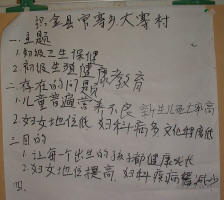 织金县常寨乡大寨村
一.主题
1.初级卫生保健
2.初级生殖健康教育
二.存在的问题
1.儿童普遍营养不良 新生儿死亡率高
2.妇女地位低 妇科病多 文化程度低
三.目的
1.让每一个出生的孩子都健康成长
2.妇女地位提高 妇科疾病
四.